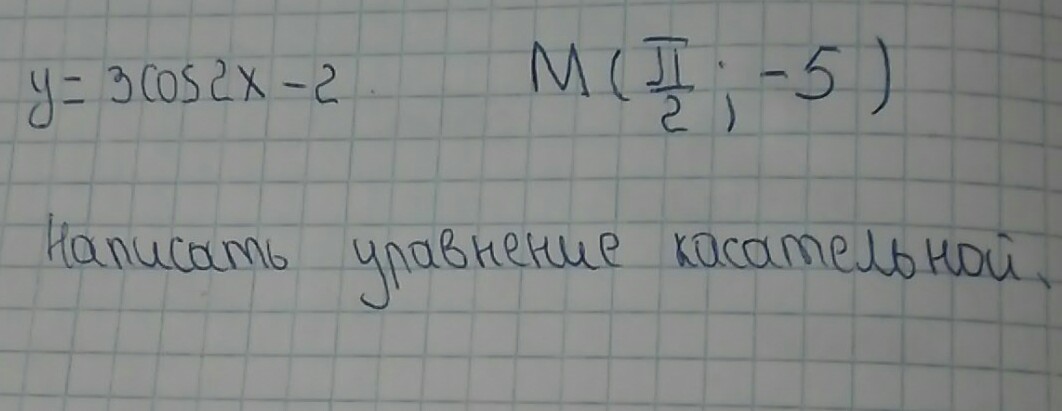 y = 3cos2x - 2 M(π/2; -5)
Написать уравнение касательной.